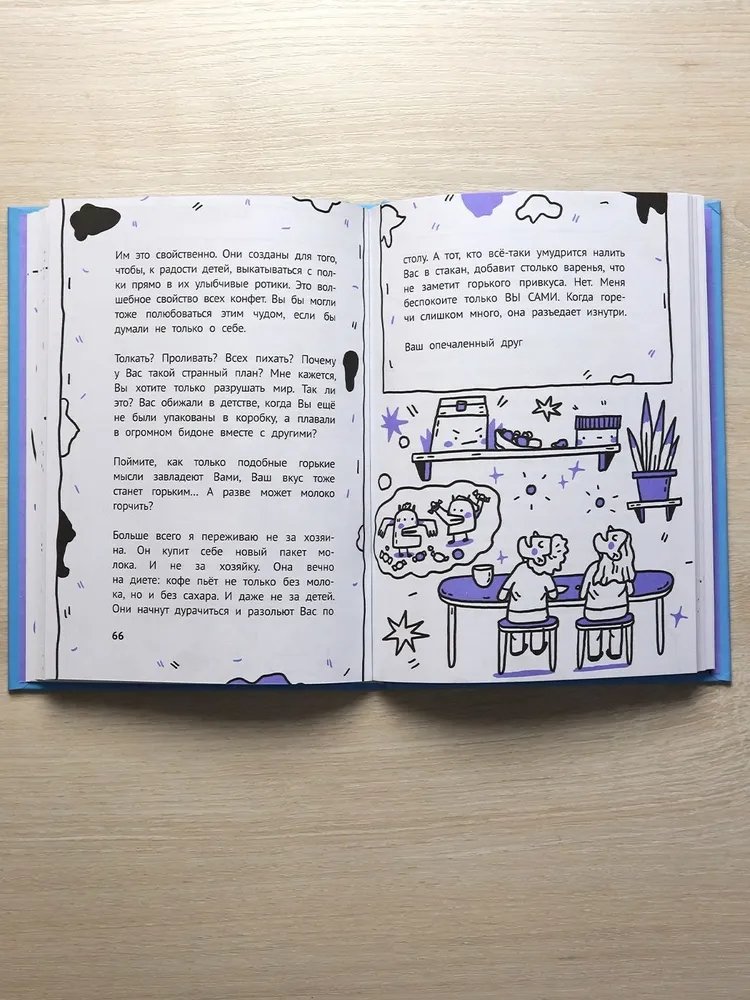 Им это свойственно. Они созданы для того,
чтобы, к радости детей, выкатываться с пол-
ки прямо в их улыбчивые ротики. Это вол-
шебное свойство всех конфет. Вы бы могли
тоже полюбоваться этим чудом, если бы
думали не только о себе.
Толкать? Проливать? Всех пихать? Почему
у Вас такой странный план? Мне кажется,
Вы хотите только разрушать мир. Так ли
это? Вас обижали в детстве, когда Вы ещё
не были упакованы в коробку, а плавали
в огромном бидоне вместе с другими?
Поймите, как только подобные горькие
мысли завладеют Вами, Ваш вкус тоже
станет горьким... А разве может молоко
горчить?
Больше всего я переживаю не за хозяи-
на. Он купит себе новый пакет мо-
лока. И не за хозяйку. Она вечно
на диете: кофе пьёт не только без моло-
ка, но и без сахара. И даже не за детей.
Они начнут дурачиться и разольют Вас по
66
столу. А тот, кто всё-таки умудрится налить
Вас в стакан, добавит столько варенья, что
не заметит горького привкуса. Нет. Меня
беспокоите только ВЫ САМИ. Когда горе-
чи слишком много, она разъедает изнутри.
Ваш опечаленный друг